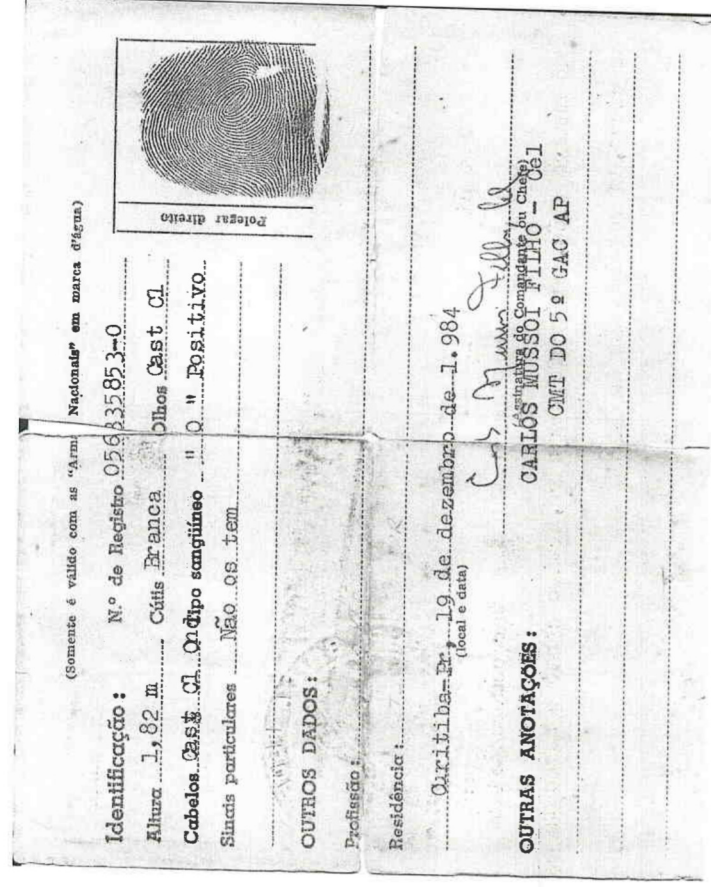 (Somente é válido com as "Arm. Nacionais" em marca d'água)
Identificação: N.º de Registro 056335853-0
Altura 1,82 m Cútis Branca Olhos Cast Cl
Cabelos Cast Cl Ond Tipo sangüíneo " O " Positivo
Sinais particulares Não os tem
Polegar direito
OUTROS DADOS:
Profissão:
Residência:
Curitiba-Pr, 19 de dezembro de 1.984
(local e data)
(Assinatura do Comandante ou Chefe)
OUTRAS ANOTAÇÕES: CARLOS MUSSOI FILHO - Cel
CMT DO 5º GAC AP